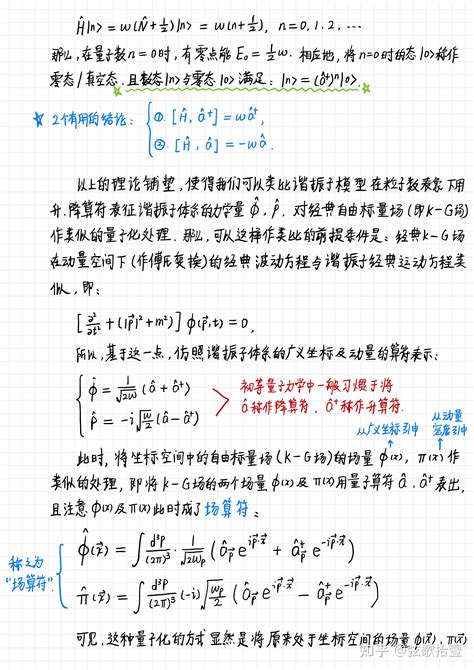 Ĥ|n⟩ = w(N̂+½)|n⟩ = w(n+½), n=0,1,2,⋯
那么,在量子数n=0时,有零点能 E₀=½w. 相应地,将n=0时的态|0⟩称作
零态/真空态.且数态|n⟩与零态|0⟩满足: |n⟩=(â⁺)ⁿ|0⟩.
☆ 2个有用的结论: { ①. [Ĥ, â⁺]=wâ⁺,
②. [Ĥ, â]=-wâ.
以上的理论铺垫,使得我们可以类比谐振子模型在粒子数表象下用
升、降算符表征谐振子体系的力学量 φ̂, p̂, 对经典自由标量场(即K-G场)
作类似的量子化处理. 那么,可以这样作类比的前提条件是:经典K-G场
在动量空间下(作傅氏变换)的经典波动方程与谐振子经典运动方程类
似,即:
[∂²/∂t² + (|p⃗|²+m²)] φ(p⃗,t)=0,
所以,基于这一点,仿照谐振子体系的广义坐标及动量的算符表示:
{ φ̂ = 1/√2w (â+â⁺)
p̂ = -i√(w/2) (â-â⁺)
初等量子力学中一般习惯于将
â称作降算符, â⁺称作升算符.
从广义坐标引申
从动量
密度引申
此时,将坐标空间中的自由标量场(K-G场)的场量 φ(x⃗), π(x⃗)作
类似的处理,即将K-G场的两个场量φ(x)及π(x)用量子算符â、â⁺表出,
且注意φ(x)及π(x)此时成了场算符:
称之为
"场算符".
{ φ̂(x⃗) = ∫ d³p/(2π)³ · 1/√2wₚ ( â_p⃗ e^{ip⃗·x⃗} + â⁺_p⃗ e^{-ip⃗·x⃗} )
π̂(x⃗) = ∫ d³p/(2π)³ (-i)√(wₚ/2) ( â_p⃗ e^{ip⃗·x⃗} - â⁺_p⃗ e^{-ip⃗·x⃗} )
可见,这种量子化的方式显然是将原来处于坐标空间的场量φ(x⃗), π(x⃗)
知乎 @弦歌拾壹